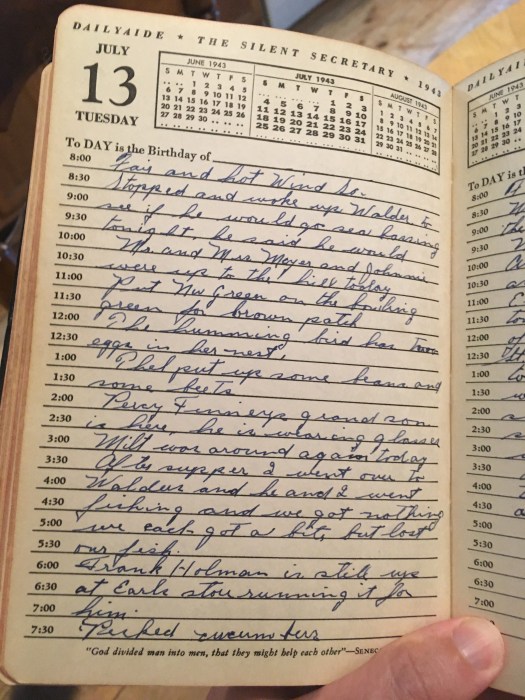 DAILYAIDE ★ THE SILENT SECRETARY ★ 1943
JULY
13
TUESDAY
JUNE 1943
S M T W T F S
.. .. 1 2 3 4 5
6 7 8 9 10 11 12
13 14 15 16 17 18 19
20 21 22 23 24 25 26
27 28 29 30 .. .. ..
JULY 1943
S M T W T F S
.. .. .. .. 1 2 3
4 5 6 7 8 9 10
11 12 13 14 15 16 17
18 19 20 21 22 23 24
25 26 27 28 29 30 31
AUGUST 1943
S M T W T F S
1 2 3 4 5 6 7
8 9 10 11 12 13 14
15 16 17 18 19 20 21
22 23 24 25 26 27 28
29 30 31 .. .. .. ..
To DAY is the Birthday of
8:00 Fair and hot Wind So.
8:30 Stopped and woke up Walder to
9:00 see if he would go sea bassing
9:30 tonight, he said he would
10:00 Mr and Mrs Meyer and Johnnie
10:30 were up to the hill today
11:00 Put New Green on the bowling
11:30 green for brown patch
12:00 The humming bird has two
12:30 eggs in her nest
1:00 Phel put up some beans and
1:30 some beets
2:00 Percy Finneys grand son
2:30 is here, he is wearing glasses
3:00 Milt was around again today
3:30 After supper I went over to
4:00 Walders and he and I went
4:30 fishing and we got nothing
5:00 we each got a bite but lost
5:30 our fish.
6:00 Frank Holman is still up
6:30 at Earls store running it for
7:00 him.
7:30 Picked cucumbers
"God divided man into men, that they might help each other"—SENEC
DAILYAI
JUNE 1943
To DAY is th
8:00
8:30
9:00
9:30
10:00
10:30
11:00
11:30
12:00
12:30
1:00
1:30
2:00
2:30
3:00
3:30
4:00
4:30
5:00
5:30
6:00
6:30
7:00